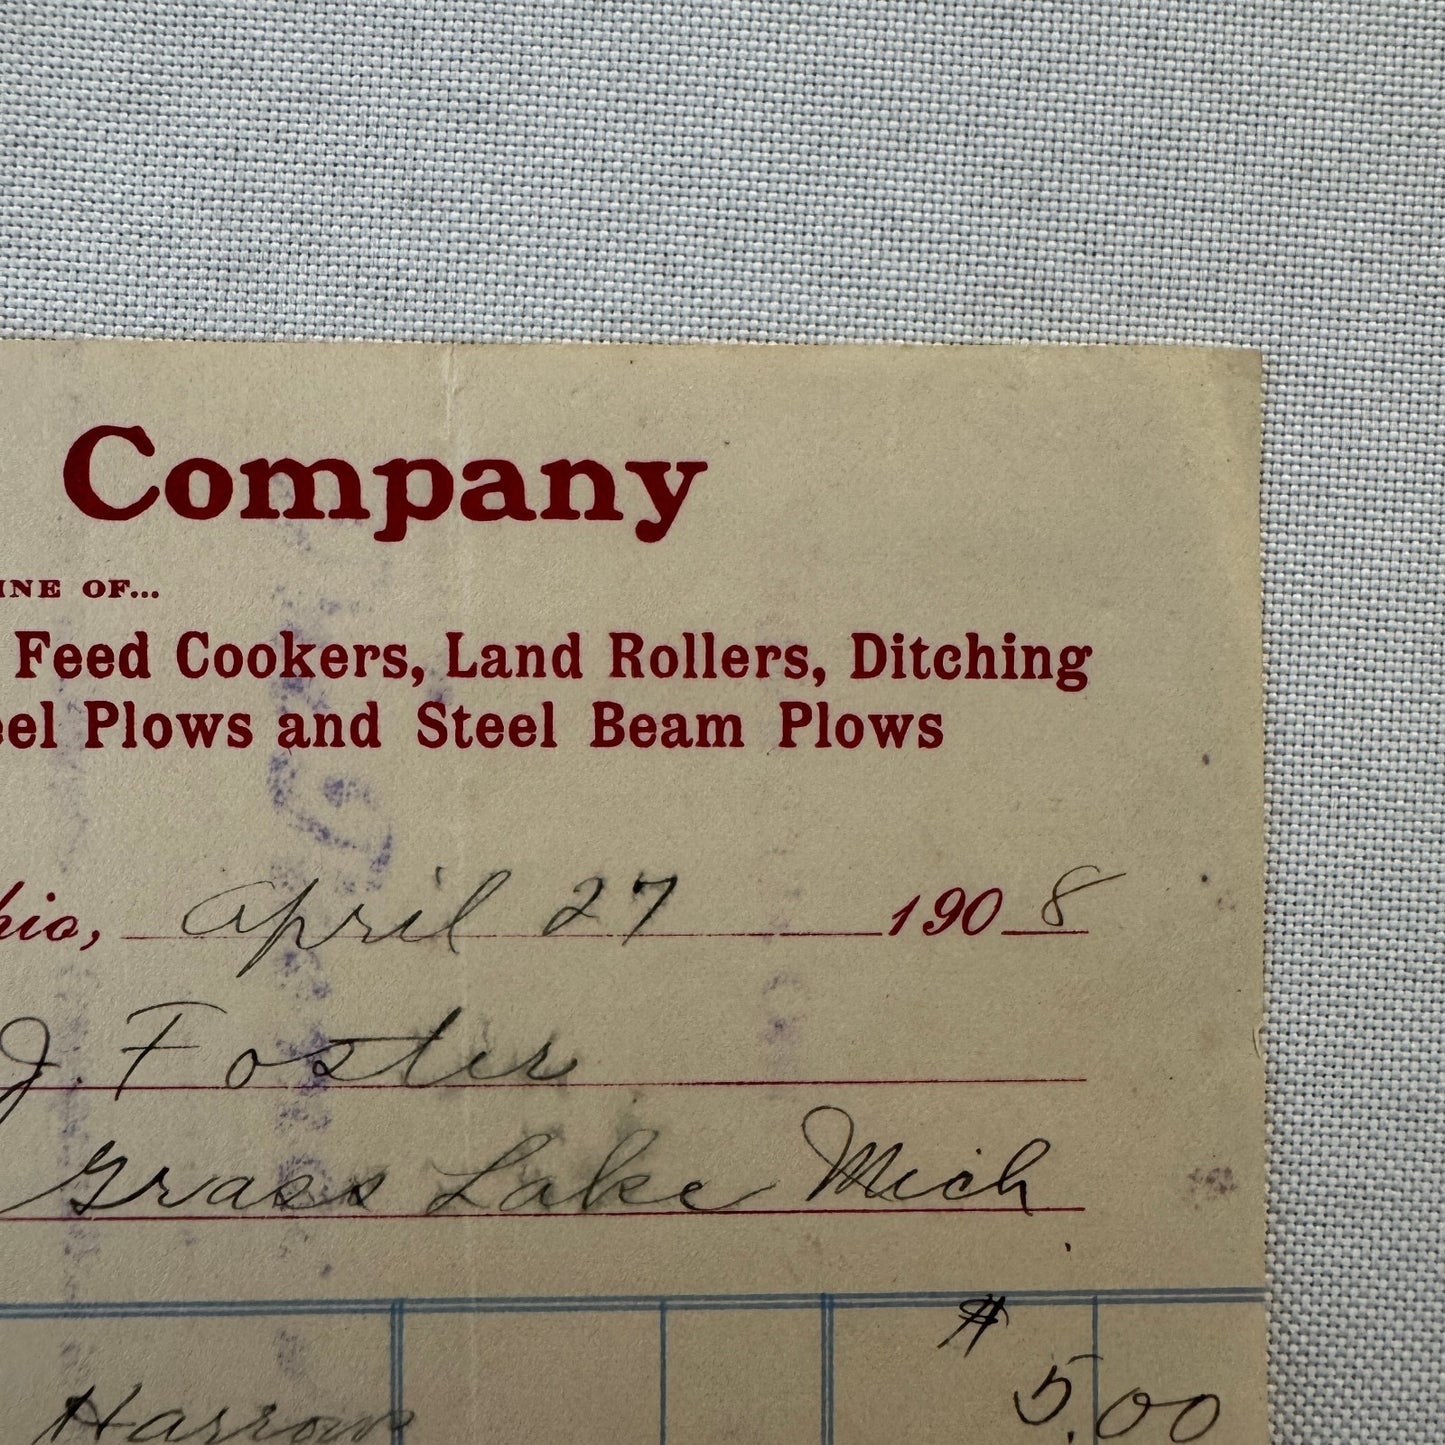 Company
INE OF...
Feed Cookers, Land Rollers, Ditching
eel Plows and Steel Beam Plows
hio, April 27 1908
J. Foster
Grass Lake Mich
$
Harrow 5.00